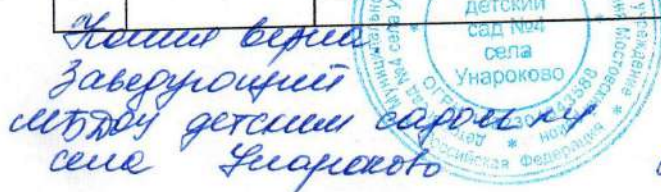 Копия верна
Заведующий
МБДОУ детским садом №4
села Унароково
детский
сад №4
села
Унароково